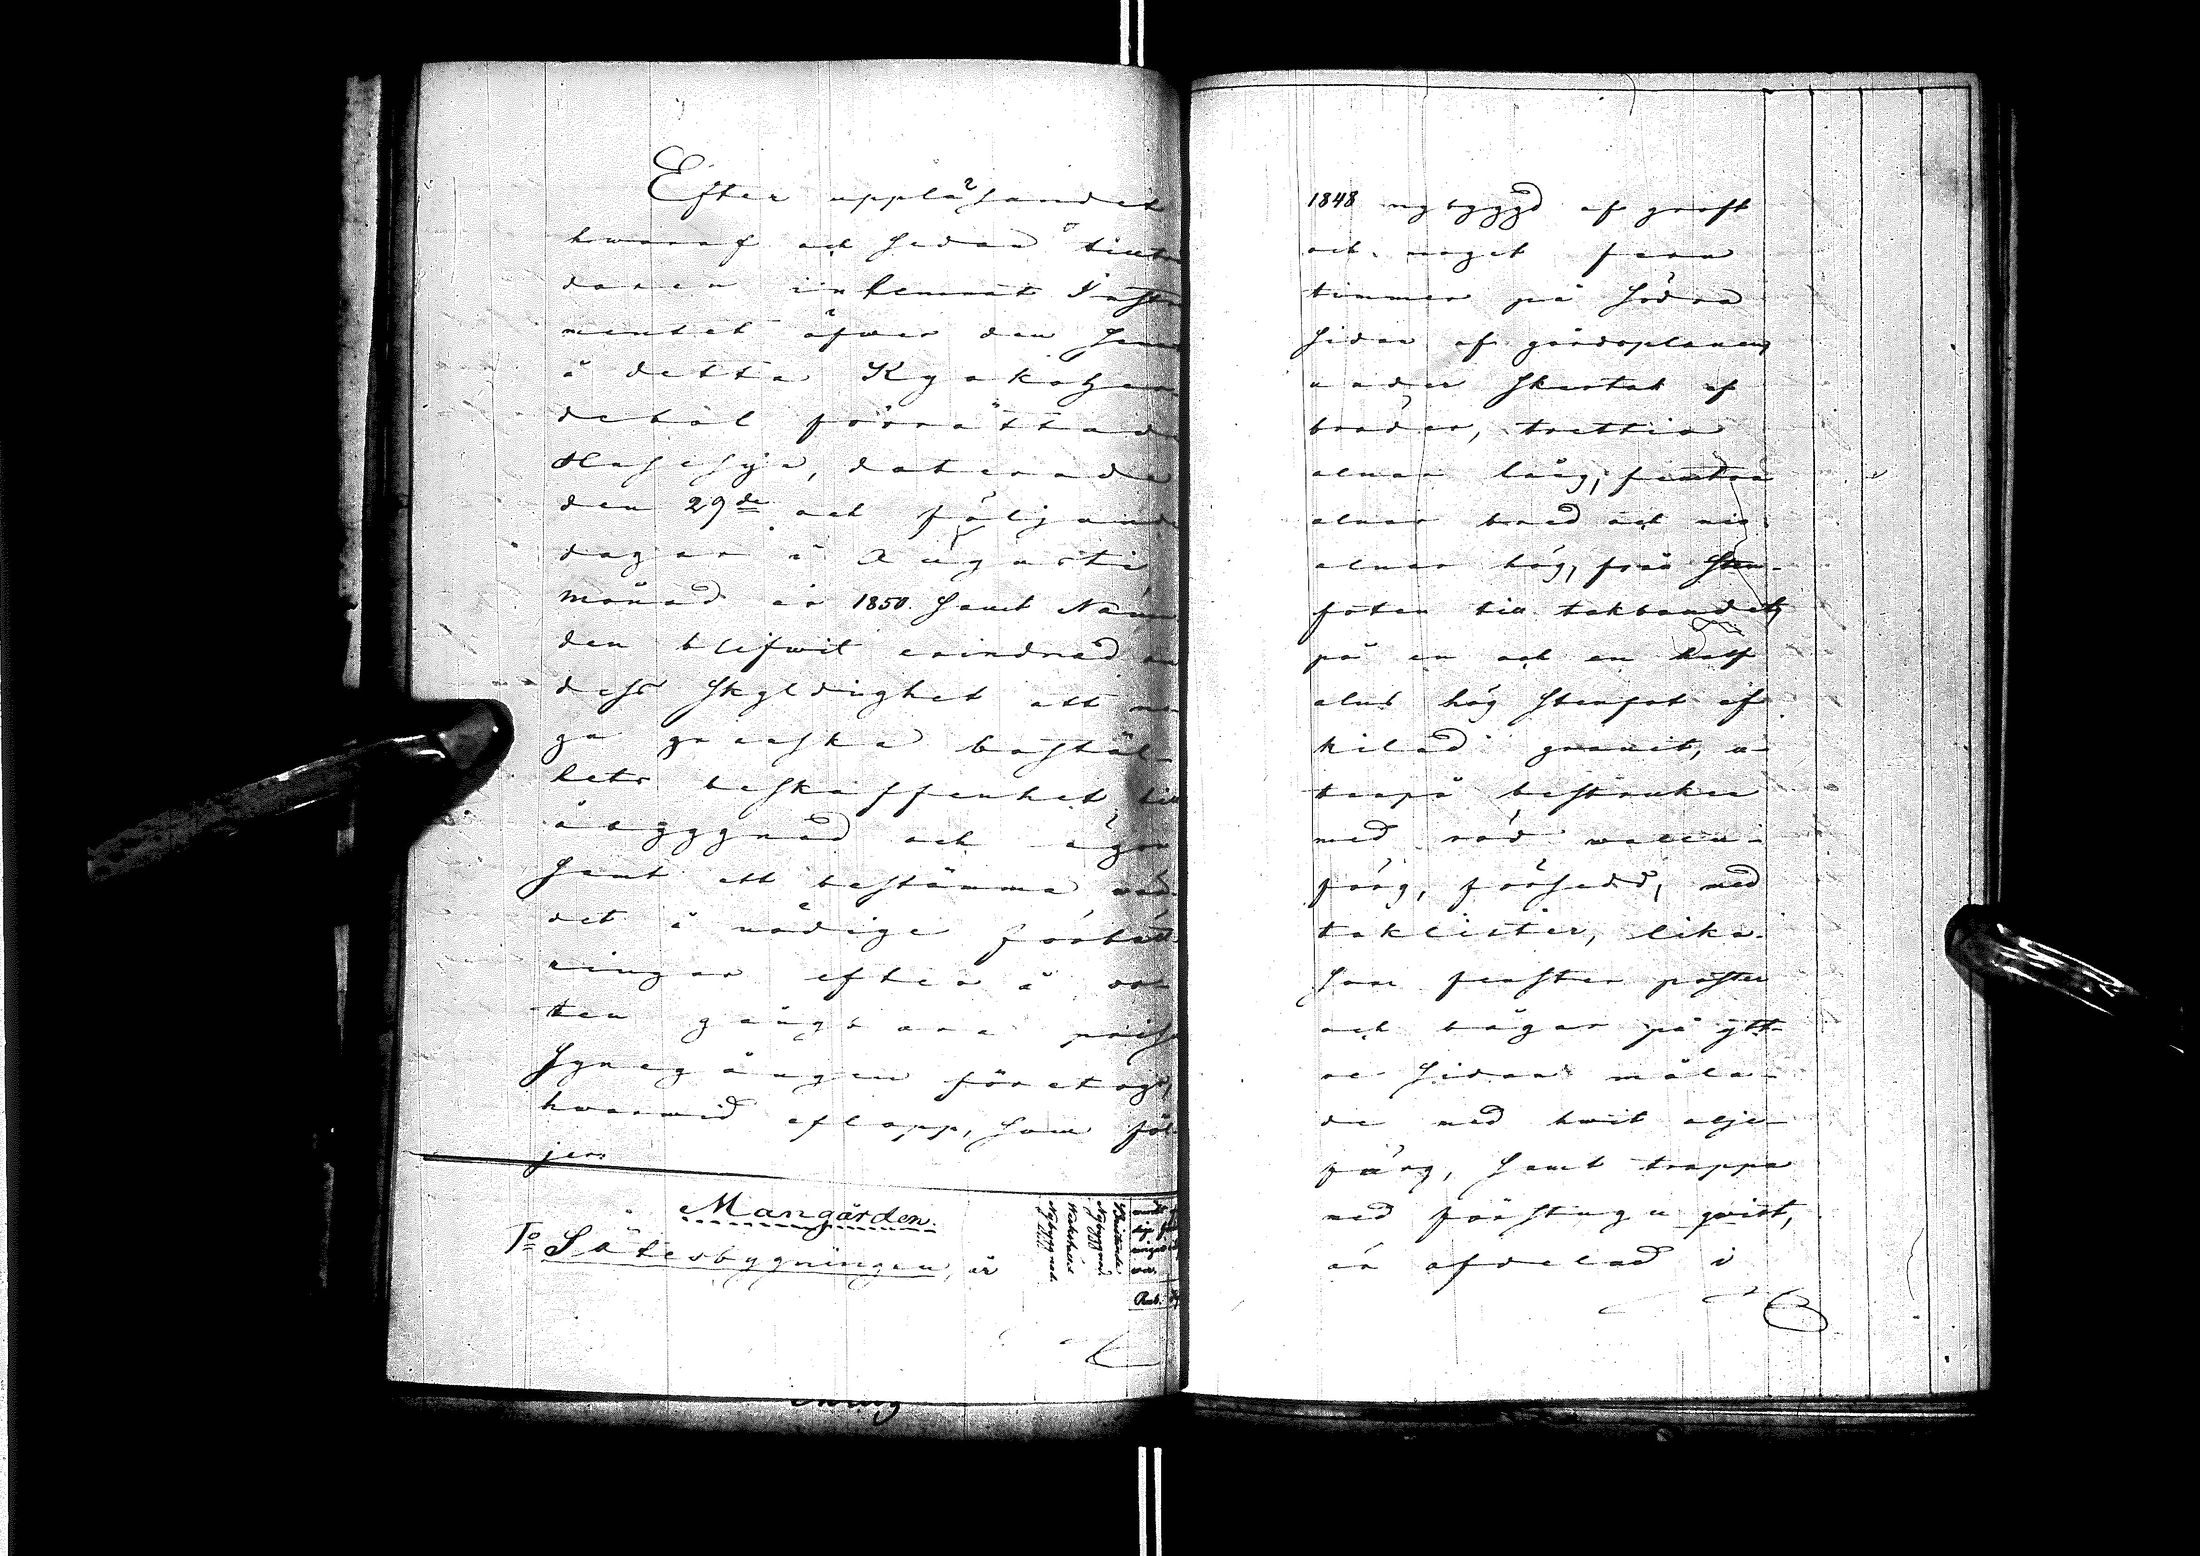 Efter uppläsandet
hwaraf och sedan
inhemat
mentet öfwer den
å detta Kyrkoher-
deböl förrättade
Husesyn, daterade
den 29de och följande
dagar i Augusti
månad år 1850. samt Näm
den blifwit erindrad
dess skyldighet att
ga granska boställ-
lets beskaffenhet till
åbyggnad och ägor
samt att bestämma
det å nödige förbätt
ringar efter å or-
ten gångbara
Synegången företogs,
hwarwid eflopp, som föl
jer:
Mangården.
1o Sätesbygningen, är
1848 nybyggd af groft
och noget furu
timmer på södra
sidan af gårdsplanen,
under skertak af
bräder, trettio
alnar lång, femton
alnar bred och nio
alnar hög, från sten-
foten till takbandet,
på en och en half
alns hög stenfot af
kilad granit, u-
tanpå bestruken
med röd wallen-
färg, försedd, med
taklister, lika-
som fenster poster
och bågar på ytt-
re sidan måla-
de med hwit olje-
färg, samt trappa
med förstugu qvist,
är afdelad i